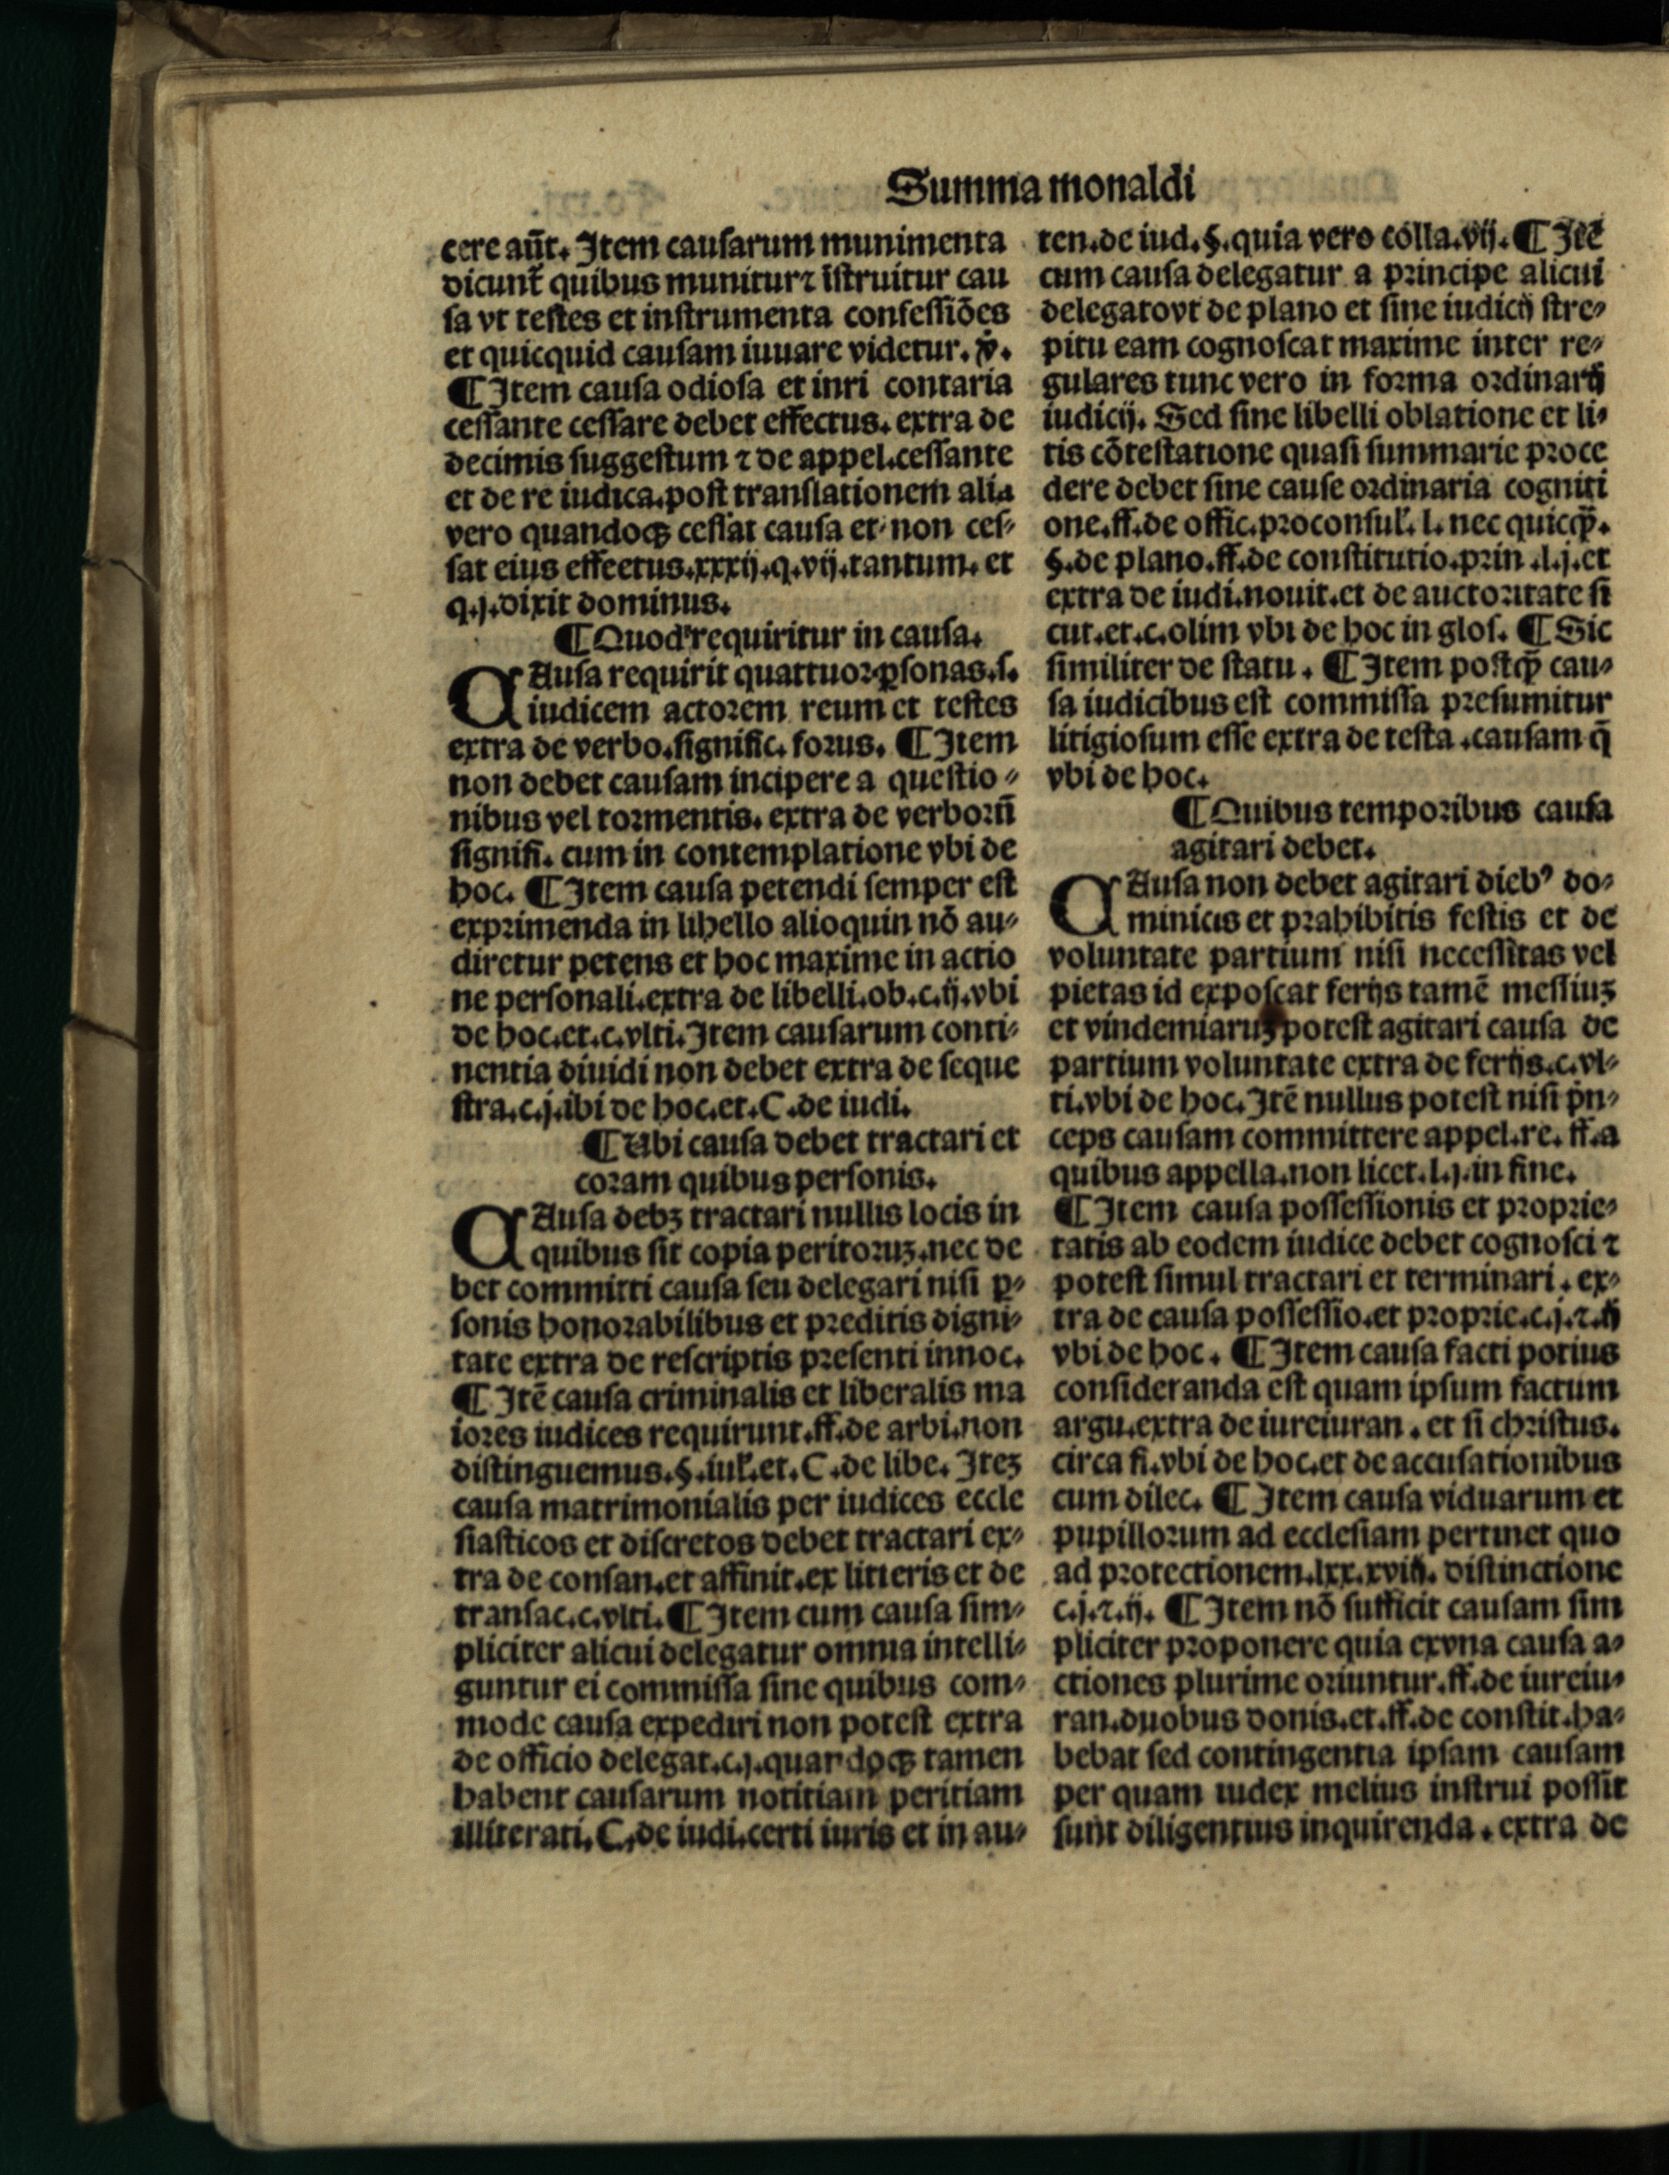 Summa monaldi
cere aūt. Item causarum munimenta
dicunt̄ quibus munitur ⁊ īstruitur cau
sa vt testes et instrumenta confessiōes
et quicquid causam iuuare videtur. v̄.
¶ Item causa odiosa et inri contaria
cessante cessare debet effectus. extra de
decimis suggestum ⁊ de appel. cessante
et de re iudica. post translationem alia
vero quandoqꝫ cessat causa et non ces⸗
sat eius effeetus. xxxij. q. vij. tantum. et
q. j. dixit dominus.
¶ Quod requiritur in causa.
CAusa requirit quattuor ꝑsonas. s.
iudicem actorem reum et testes
extra de verbo. signific. forus. ¶ Item
non debet causam incipere a questio⸗
nibus vel tormentis. extra de verborū
signifi. cum in contemplatione vbi de
hoc. ¶ Item causa petendi semper est
exprimenda in libello alioquin nō au⸗
diretur petens et hoc maxime in actio
ne personali. extra de libelli. ob. c. ij. vbi
de hoc. et. c. vlti. Item causarum conti⸗
nentia diuidi non debet extra de seque
stra. c. j. ibi de hoc. et. C. de iudi.
¶ Ubi causa debet tractari et
coram quibus personis.
CAusa debꝫ tractari nullis locis in
quibus sit copia peritoruꝫ. nec de
bet committi causa seu delegari nisi ꝑ⸗
sonis honorabilibus et preditis digni⸗
tate extra de rescriptis presenti innoc.
¶ Itē causa criminalis et liberalis ma
iores iudices requirunt. ff. de arbi. non
distinguemus. §. iul̄. et. C. de libe. Iteꝫ
causa matrimonialis per iudices eccle
siasticos et discretos debet tractari ex⸗
tra de consan. et affinit. ex litteris et de
transac. c. vlti. ¶ Item cum causa sim⸗
pliciter alicui delegatur omnia intelli⸗
guntur ei commissa sine quibus com⸗
mode causa expediri non potest extra
de officio delegat. c. j. quandoqꝫ tamen
habent causarum notitiam peritiam
illiterati. C. de iudi. certi iuris et in au⸗
ten. de iud. §. quia vero colla. vij. ¶ Itē
cum causa delegatur a principe alicui
delegato vt de plano et sine iudicij stre⸗
pitu eam cognoscat maxime inter re⸗
gulares tunc vero in forma ordinarij
iudicij. Sed sine libelli oblatione et li⸗
tis cōtestatione quasi summarie proce
dere debet sine cause ordinaria cogniti
one. ff. de offic. proconsul̄. l. nec quicqꝫ̄.
§. de plano. ff. de constitutio. prin. l. j. et
extra de iudi. nouit. et de auctoritate si
cut. et. c. olim vbi de hoc in glos. ¶ Sic
similiter de statu. ¶ Item postqꝫ̄ cau⸗
sa iudicibus est commissa presumitur
litigiosum esse extra de testa. causam q̄
vbi de hoc.
¶ Quibus temporibus causa
agitari debet.
CAusa non debet agitari dieb⁹ do⸗
minicis et prahibitis festis et de
voluntate partium nisi necessitas vel
pietas id exposcat ferijs tamē messiuꝫ
et vindemiaruꝫ potest agitari causa de
partium voluntate extra de ferijs. c. vl⸗
ti. vbi de hoc. Itē nullus potest nisi pn̄⸗
ceps causam committere appel. re. ff. a
quibus appella. non licet. l. j. in fine.
¶ Item causa possessionis et proprie⸗
tatis ab eodem iudice debet cognosci ⁊
potest simul tractari et terminari. ex⸗
tra de causa possessio. et proprie. c. j. ⁊. ij
vbi de hoc. ¶ Item causa facti potius
consideranda est quam ipsum factum
argu. extra de iureiuran. et si christus.
circa fi. vbi de hoc. et de accusationibus
cum dilec. ¶ Item causa viduarum et
pupillorum ad ecclesiam pertinet quo
ad protectionem. lxx. xviij. distinctione
c. j. ⁊. ij. ¶ Item nō sufficit causam sim
pliciter proponere quia ex vna causa a⸗
ctiones plurime oriuntur. ff. de iureiu⸗
ran. duobus vonis. et. ff. de constit. ha⸗
bebat sed contingentia ipsam causam
per quam iudex melius instrui possit
sunt diligentius inquirenda. extra de